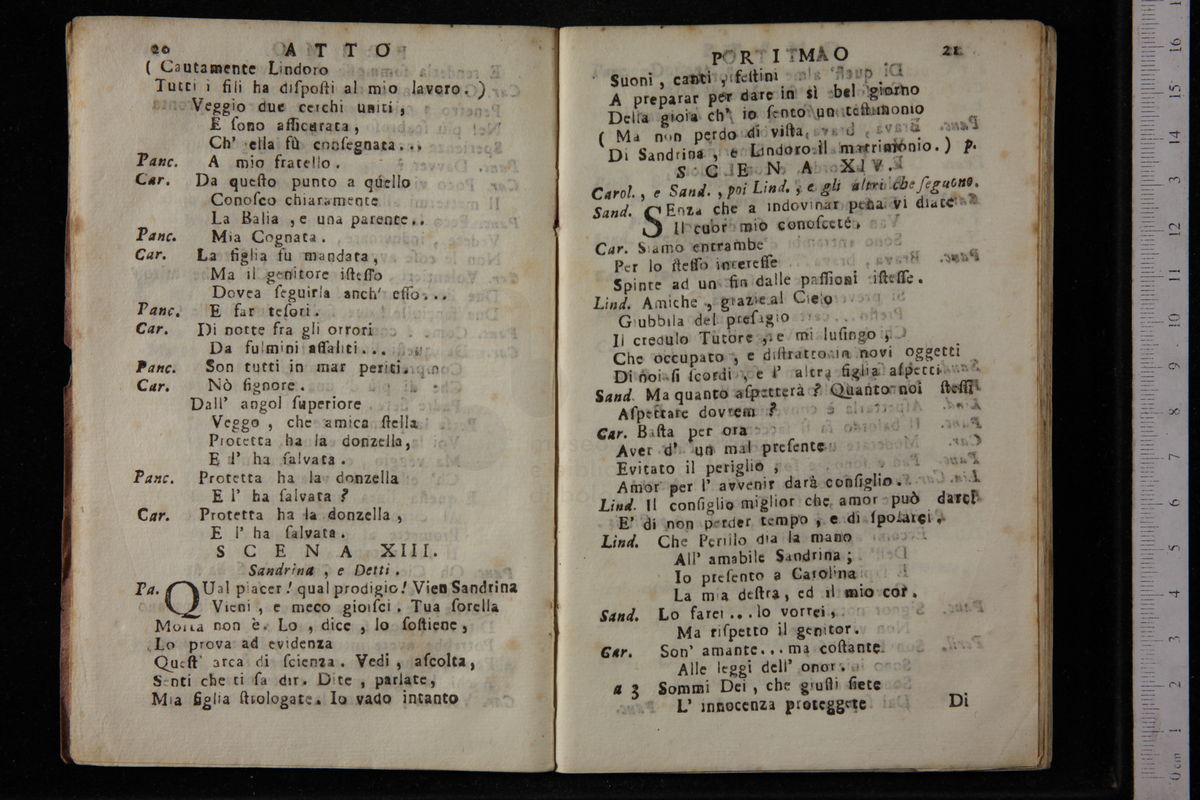 20 A T T O
( Cautamente Lindoro
Tutti i fili ha diſpoſti al mio lavoro. )
Veggio due cerchi uniti ,
E ſono aſſicurata ,
Ch' ella fù conſegnata...
Panc. A mio fratello .
Car. Da queſto punto a quello
Conoſco chiaramente
La Balia , e una parente..
Panc. Mia Cognata .
Car. La figlia fu mandata ,
Ma il genitore iſteſſo
Dovea ſeguirla anch' eſſo...
Panc. E far teſori .
Car. Di notte fra gli orrori
Da fulmini aſſaliti...
Panc. Son tutti in mar periti.
Car. Nò ſignore .
Dall' angol ſuperiore
Veggo , che amica ſtella
Protetta ha la donzella,
E l' ha ſalvata .
Panc. Protetta ha la donzella
E l' ha ſalvata ?
Car. Protetta ha la donzella ,
E l' ha ſalvata .
S C E N A XIII.
Sandrina , e Detti .
Pa. QUal piacer ! qual prodigio ! Vien Sandrina
Vieni , e meco gioiſci . Tua ſorella
Morta non è. Lo , dice , lo ſoſtiene ,
Lo prova ad evidenza
Queſt' arca di ſcienza . Vedi , aſcolta,
Senti che ti ſa dir. Dite , parlate,
Mia figlia ſtrologate. Io vado intanto
P R I M O 21
Suoni , canti , feſtini
A preparar per dare in sì bel giorno
Della gioia ch' io ſento un teſtimonio
( Ma non perdo di viſta,
Di Sandrina , e Lindoro il matrimonio. ) p.
S C E N A XIV.
Carol. , e Sand. , poi Lind. , e gli altri che ſeguono.
Sand. SEnza che a indovinar pena vi diate
Il cuor mio conoſcete.
Car. Siamo entrambe
Per lo ſteſſo intereſſe
Spinte ad un fin dalle paſſioni iſteſſe .
Lind. Amiche , grazie al Cielo
Giubbila del preſagio
Il credulo Tutore , e mi luſingo ,
Che occupato , e diſtratto in novi oggetti
Di noi ſi ſcordi , e l' altra figlia aſpetti
Sand. Ma quanto aſpetterà ? Quanto noi ſteſſi
Aſpettare dovrem ?
Car. Baſta per ora
Aver d' un mal preſente
Evitato il periglio ,
Amor per l' avvenir darà conſiglio.
Lind. Il conſiglio miglior che amor può darci
E' di non perder tempo , e di ſpoſarci .
Lind. Che Perillo dia la mano
All' amabile Sandrina ;
Io preſento a Carolina
La mia deſtra , ed il mio cor.
Sand. Lo farei ... lo vorrei ,
Ma riſpetto il genitor.
Car. Son' amante... ma coſtante
Alle leggi dell' onor.
a 3 Sommi Dei , che giuſti ſiete
L' innocenza proteggete
Di